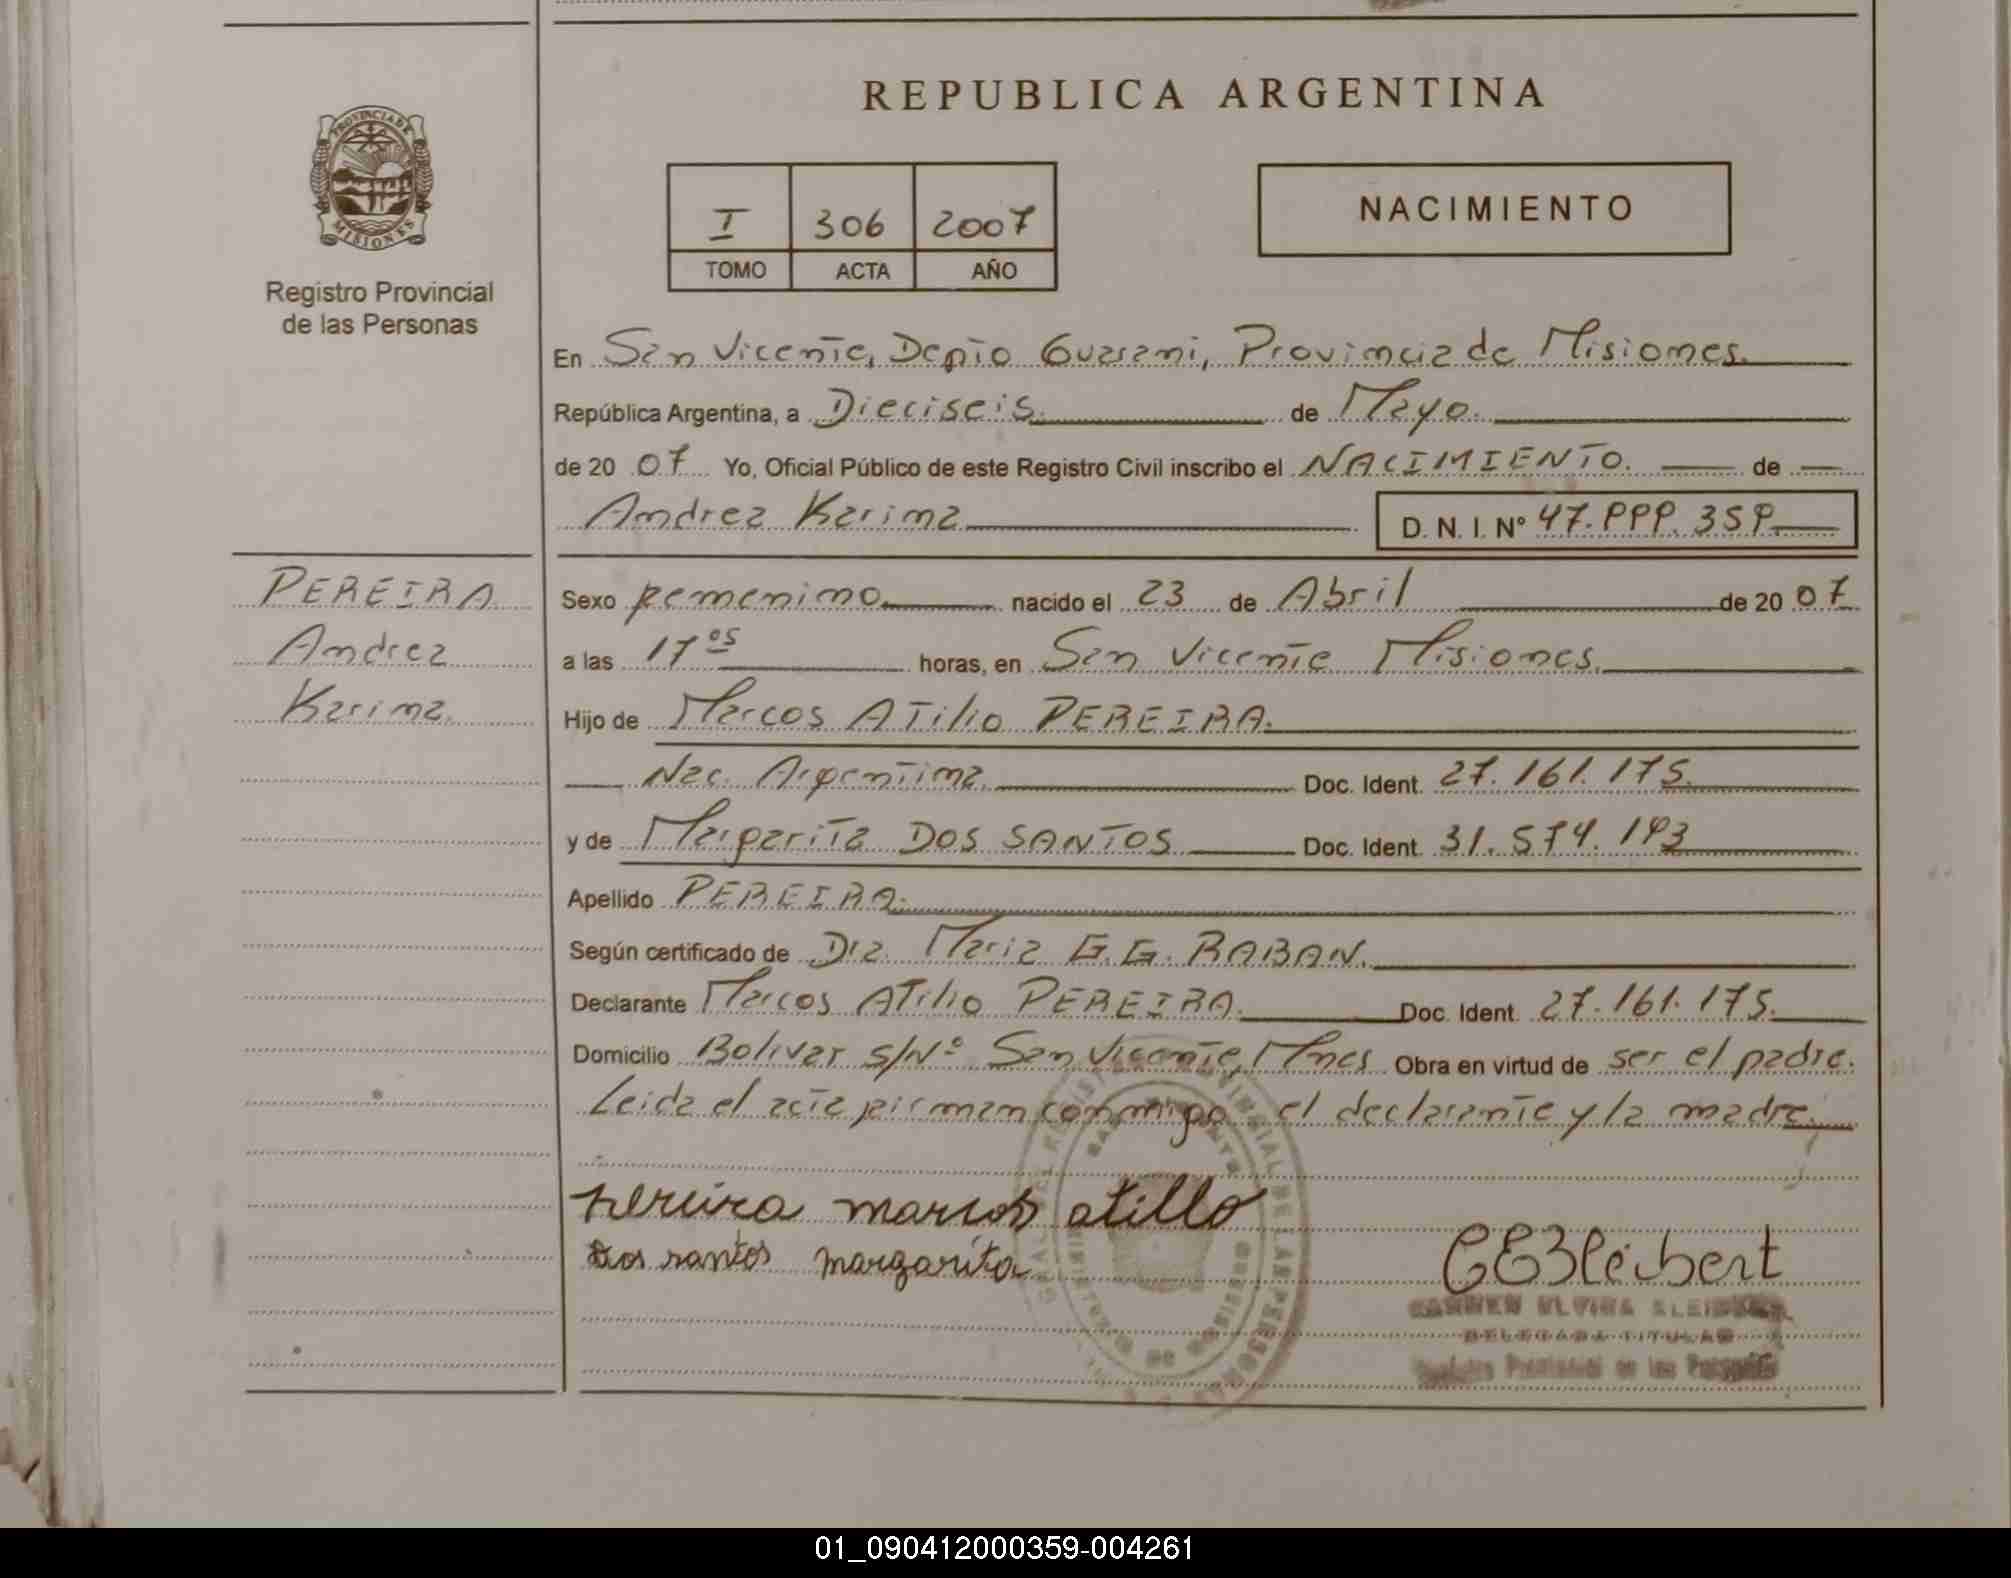 REPUBLICA ARGENTINA
PROVINCIA DE MISIONES
Registro Provincial
de las Personas
I 306 2007
TOMO ACTA AÑO
NACIMIENTO
En San Vicente, Depto Guarani, Provincia de Misiones.
República Argentina, a Dieciseis. de Mayo.
de 20 07 Yo, Oficial Público de este Registro Civil inscribo el NACIMIENTO. de
Andrea Karina D. N. I. Nº 47.
PEREIRA
Andrea
Karina.
Sexo femenino nacido el 23 de Abril de 20 07
a las 17 05 horas, en San Vicente Misiones.
Hijo de Marcos Atilio PEREIRA.
Nac. Argentina. Doc. Ident. 27.161.175.
y de Margarita DOS SANTOS Doc. Ident. 31.574.193
Apellido PEREIRA.
Según certificado de Dra. Maria G.G. RABAN.
Declarante Marcos Atilio PEREIRA. Doc. Ident. 27.161.175.
Domicilio Bolivar s/Nº San Vicente, Mnes Obra en virtud de ser el padre.
Leida el acta firman conmigo el declarante y la madre.
Pereira marcos atillo
Dos santos margarita
CEKleibert
CARMEN ELVIRA
DELEGADA TITULAR
Registro Provincial de las Personas
01_090412000359-004261